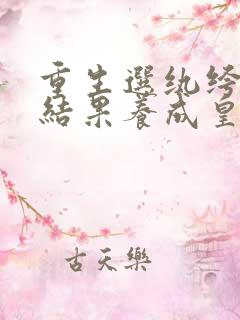 重生選紈絝
結果養成皇
古天樂